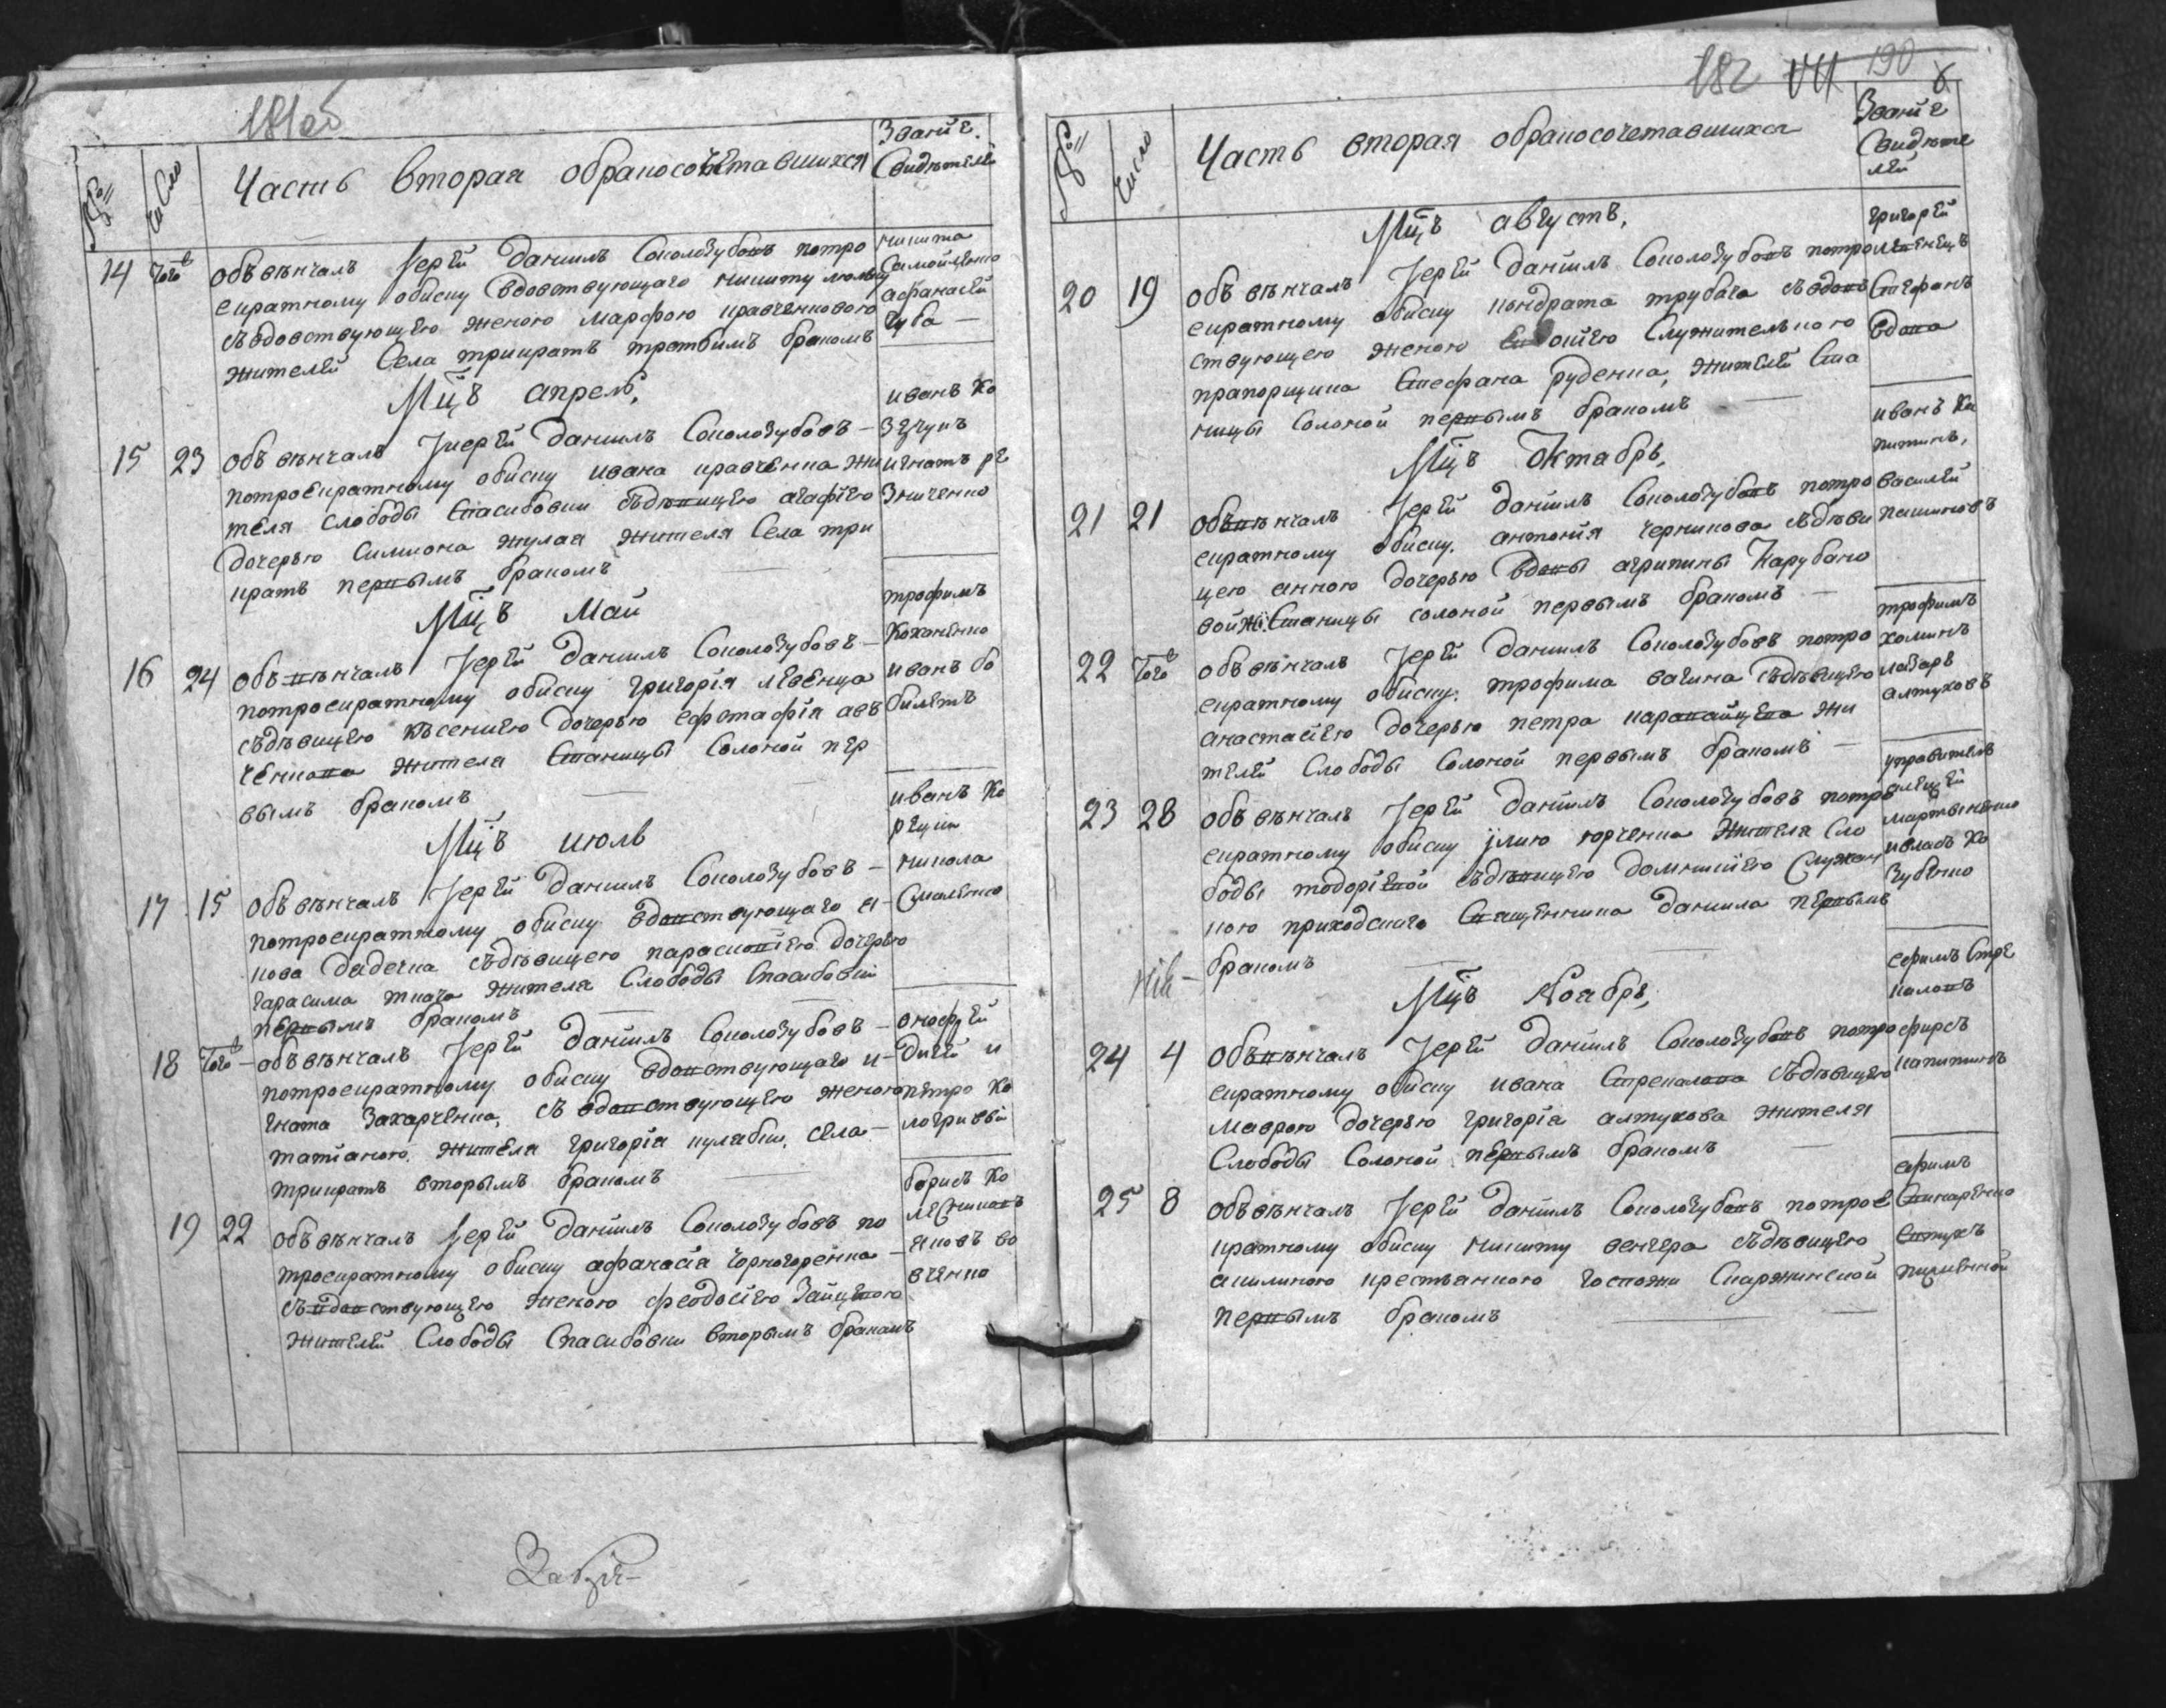 181об
№
Число
Часть вторая обракосочетавшихся
Званїе
Свидѣтелей
14 того
обвѣнчалъ Іерей данїилъ Сокологубовъ потро
екратному обиску вдовствующаго никиту
съвдовствующею женою марфою кравченковою
жителей Села трикратъ третьимъ бракомъ
никита
Самойленко
афанасїй
чуба
Мцъ апрель,
15 23
объвѣнчалъ Іиерей данїилъ Сокологубовъ
потроекратному обиску ивана кравченка жи
теля слободы Спасибовки съдѣвицею агафїею
дочерью Симиона жулая жителя Села три
кратъ первымъ бракомъ
иванъ ко
игнатъ ре
зниченко
Мцъ Май
16 24
объвѣнчалъ Іерей данїилъ Сокологубовъ
потроекратному обиску григорїя левенца
съдѣвицею ксениею дочерью ефстафїя лев
ченкова жителя Станицы Солоной пер
вымъ бракомъ
трофимъ
Кохненко
иванъ бо
Мцъ июль
17 15
объвѣнчалъ Іерей данїилъ Сокологубовъ
потроекратному обиску вдовствующаго я
кова дядечка съдѣвицею парасковїею дочерью
гарасима ткача жителя Слободы Спасибовки
первымъ бракомъ
иванъ ко
никола
Смаленко
18 того
объвѣнчалъ Іерей данїилъ Сокологубовъ
потроекратному обиску вдовствующаго и
гната Захарченка, съ вдовствующею женою
татїаною, жителя григорїя кулябки, села
трикратъ вторымъ бракомъ
онофрей
петро ко
19 22
объвѣнчалъ Іерей данїилъ Сокологубовъ по
троекратному обиску афанасїя чорногоренка
съвдовствующею женою феодосїею Зайцевою
жителей Слободы Спасибовки вторымъ бракомъ
борисъ ко
лесниковъ
яковъ во
вченко
182 190
№
Число
Часть вторая обракосочетавшихся
Званїе
Свидѣте
лей
Мцъ августъ,
20 19
объвѣнчалъ Іерей данїилъ Сокологубовъ потро
екратному обиску кондрата трубача съвдов
ствующею женою Служительною
прапорщика Стефана руденка, жителей Ста
ницы Солоной первымъ бракомъ
григорей
левенецъ
Стефанъ
вдова
Мцъ Октябрь,
21 21
обвѣнчалъ Іерей данїилъ Сокологубовъ потро
екратному обиску антонїя черникова съдѣви
цею анною дочерью вдовы агрипины Карубано
вой Станицы солоной первымъ бракомъ
иванъ ка
питинъ,
василей
пашиновъ
22 того
объвѣнчалъ Іерей данїилъ Сокологубовъ потро
екратному обиску трофима вагина съдѣвицею
анастасїею дочерью петра каравайцева жи
телей Слободы Солоной первымъ бракомъ
трофимъ
хоминъ
лазарь
алтуховъ
23 28
объвѣнчалъ Іерей данїилъ Сокологубовъ потро
екратному обиску ілию юрченка жителя Сло
боды тодорїевой съдѣвицею домникїею Служан
кою приходскаго Священника данїила первымъ
бракомъ
управитель
алексей
мартыненко
ивласъ ко
зубенко
Мцъ Ноябрь,
24 4
объвѣнчалъ Іерей данїилъ Сокологубовъ потро
екратному обиску ивана Стрекалова съдѣвицею
маврою дочерью григорїя алтухова жителя
Слободы Солоной первымъ бракомъ
ефимъ Стре
каловъ
фирсъ
капитинъ
25 8
объвѣнчалъ Іерей данїилъ Сокологубовъ потрое
кратному обиску никиту венгера съдѣвицею
акилиною крестьянкою госпожи Скаржинской
первымъ бракомъ
ефимъ